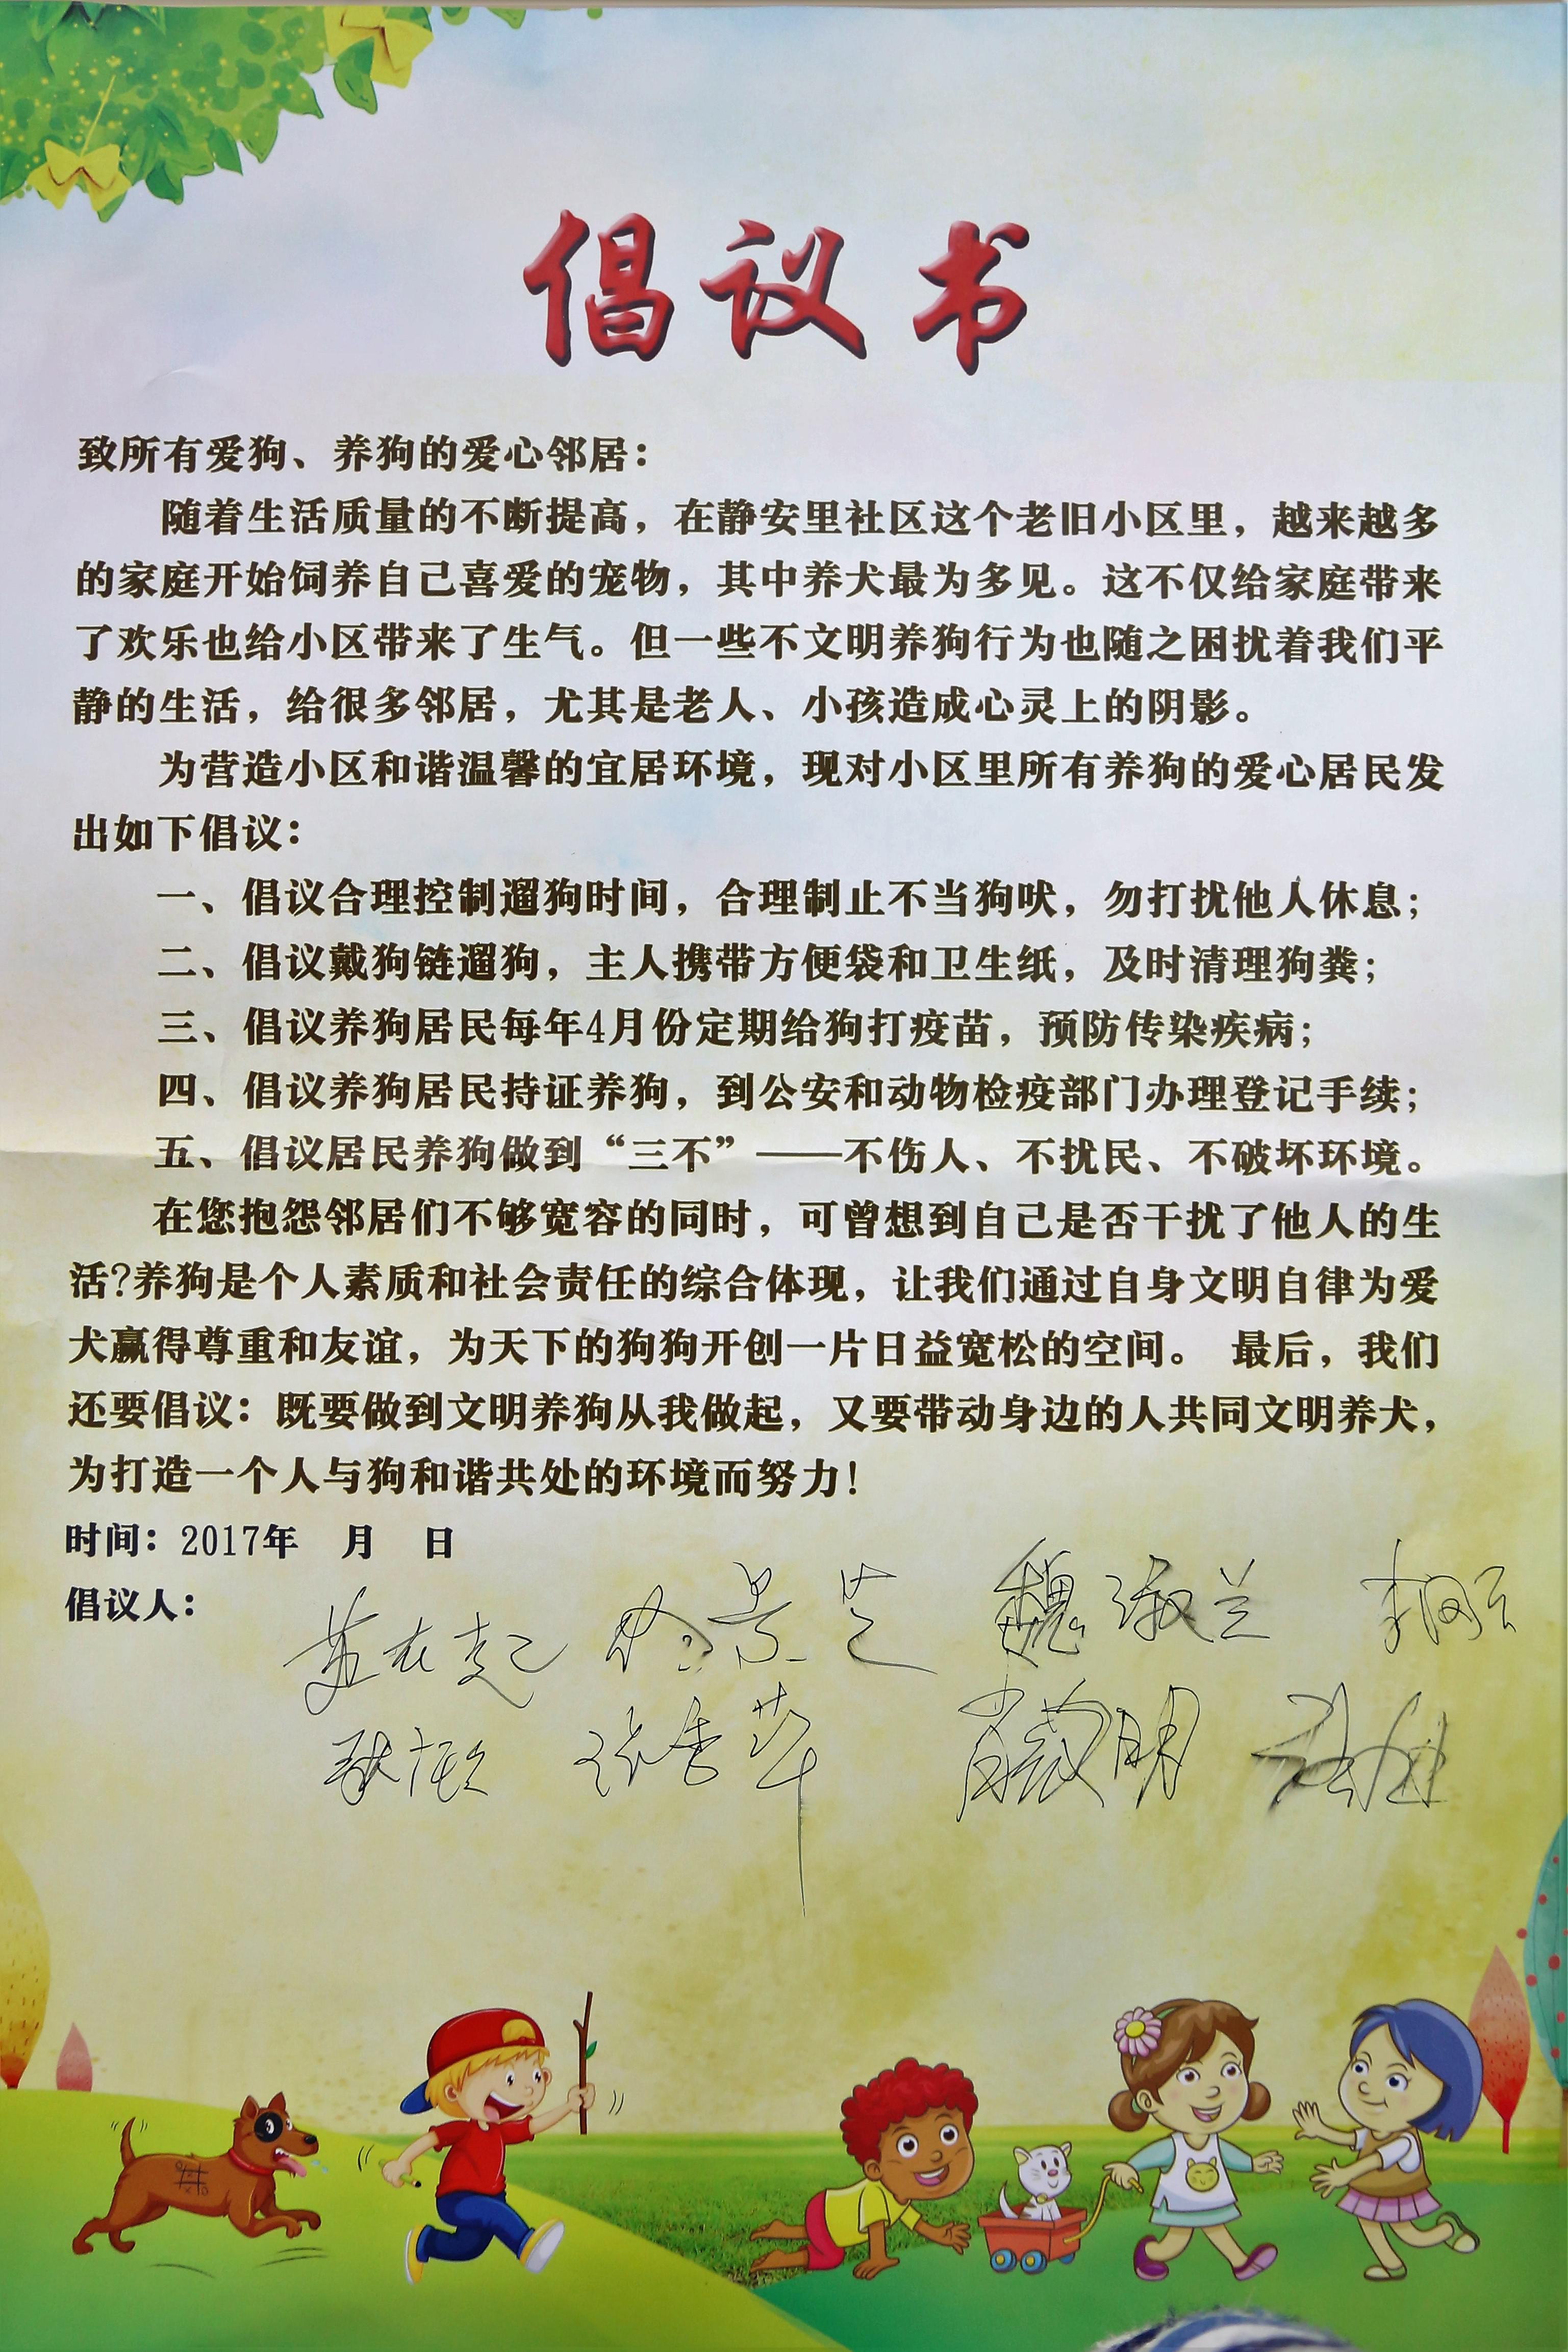 倡议书
致所有爱狗、养狗的爱心邻居：
随着生活质量的不断提高，在静安里社区这个老旧小区里，越来越多
的家庭开始饲养自己喜爱的宠物，其中养犬最为多见。这不仅给家庭带来
了欢乐也给小区带来了生气。但一些不文明养狗行为也随之困扰着我们平
静的生活，给很多邻居，尤其是老人、小孩造成心灵上的阴影。
为营造小区和谐温馨的宜居环境，现对小区里所有养狗的爱心居民发
出如下倡议：
一、倡议合理控制遛狗时间，合理制止不当狗吠，勿打扰他人休息；
二、倡议戴狗链遛狗，主人携带方便袋和卫生纸，及时清理狗粪；
三、倡议养狗居民每年4月份定期给狗打疫苗，预防传染疾病；
四、倡议养狗居民持证养狗，到公安和动物检疫部门办理登记手续；
五、倡议居民养狗做到“三不”——不伤人、不扰民、不破坏环境。
在您抱怨邻居们不够宽容的同时，可曾想到自己是否干扰了他人的生
活?养狗是个人素质和社会责任的综合体现，让我们通过自身文明自律为爱
犬赢得尊重和友谊，为天下的狗狗开创一片日益宽松的空间。 最后，我们
还要倡议：既要做到文明养狗从我做起，又要带动身边的人共同文明养犬，
为打造一个人与狗和谐共处的环境而努力！
时间：2017年 月 日
倡议人：
魏淑兰